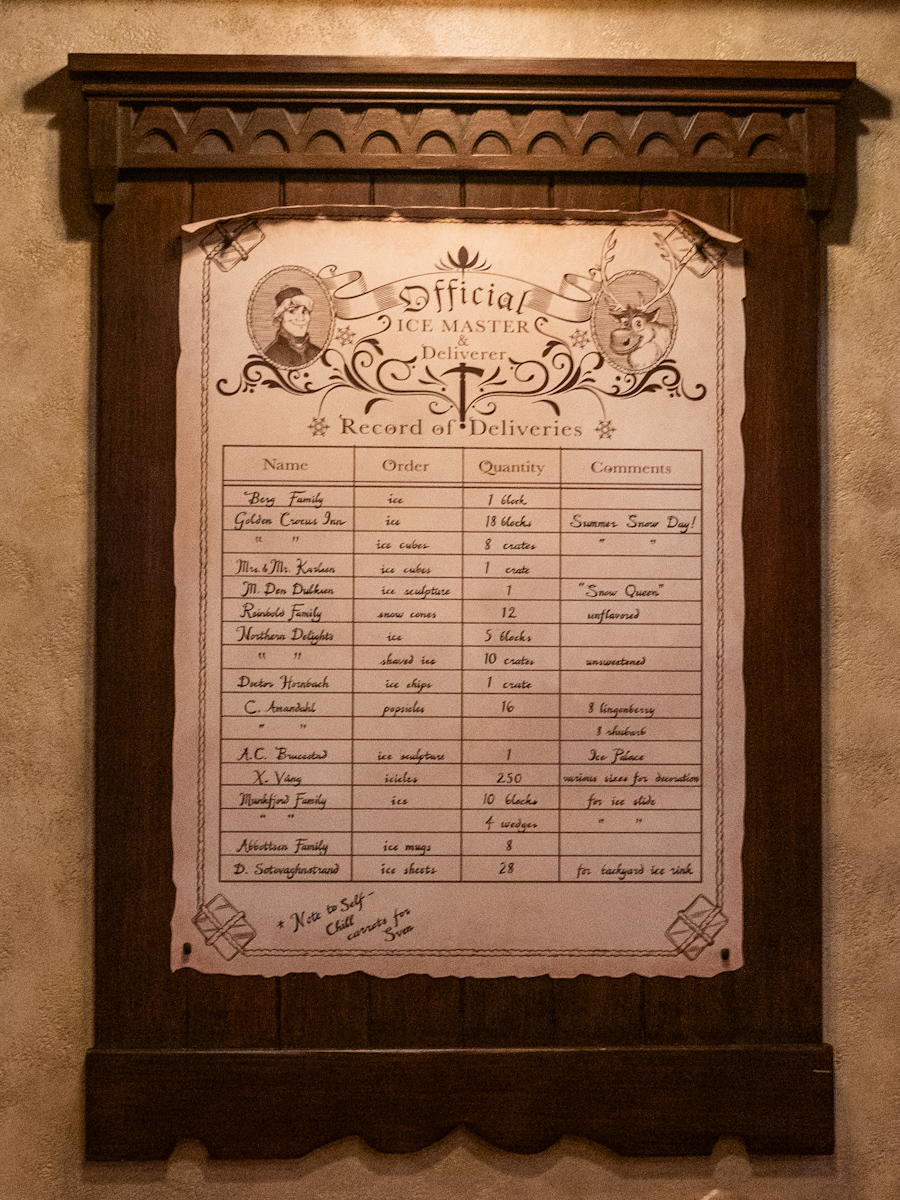 Official
ICE MASTER
&
Deliverer
Record of Deliveries
Name Order Quantity Comments
Berg Family ice 1 block
Golden Crocus Inn ice 18 blocks Summer Snow Day!
" " ice cubes 8 crates " "
Mrs. & Mr. Karlsen ice cubes 1 crate
M. Den Dulkien ice sculpture 1 "Snow Queen"
Reinbold Family snow cones 12 unflavored
Northern Delights ice 5 blocks
" " shaved ice 10 crates unsweetened
Doctor Hornbach ice chips 1 crate
C. Amandahl popsicles 16 8 lingonberry
" " 8 rhubarb
A.C. ice sculpture 1 Ice Palace
X.Väng icicles 250 various sizes for decoration
Munkfjord Family ice 10 blocks for ice slide
" " 4 wedges " "
Abbottsen Family ice mugs 8
D. ice sheets 28 for backyard ice rink
* Note to Self -
Chill
carrots for
Sven